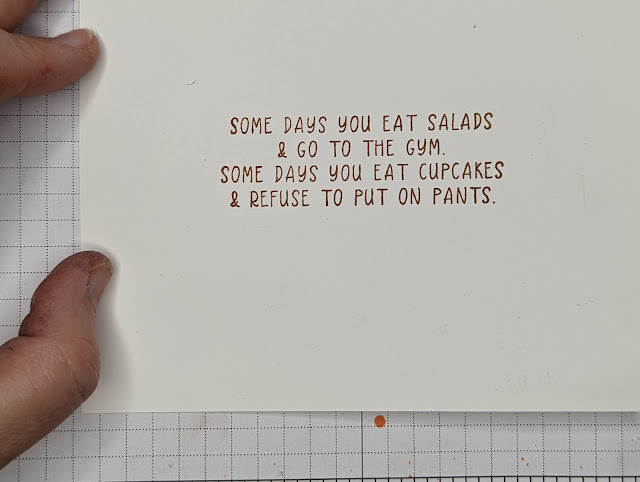 SOME DAYS YOU EAT SALADS
& GO TO THE GYM.
SOME DAYS YOU EAT CUPCAKES
& REFUSE TO PUT ON PANTS.